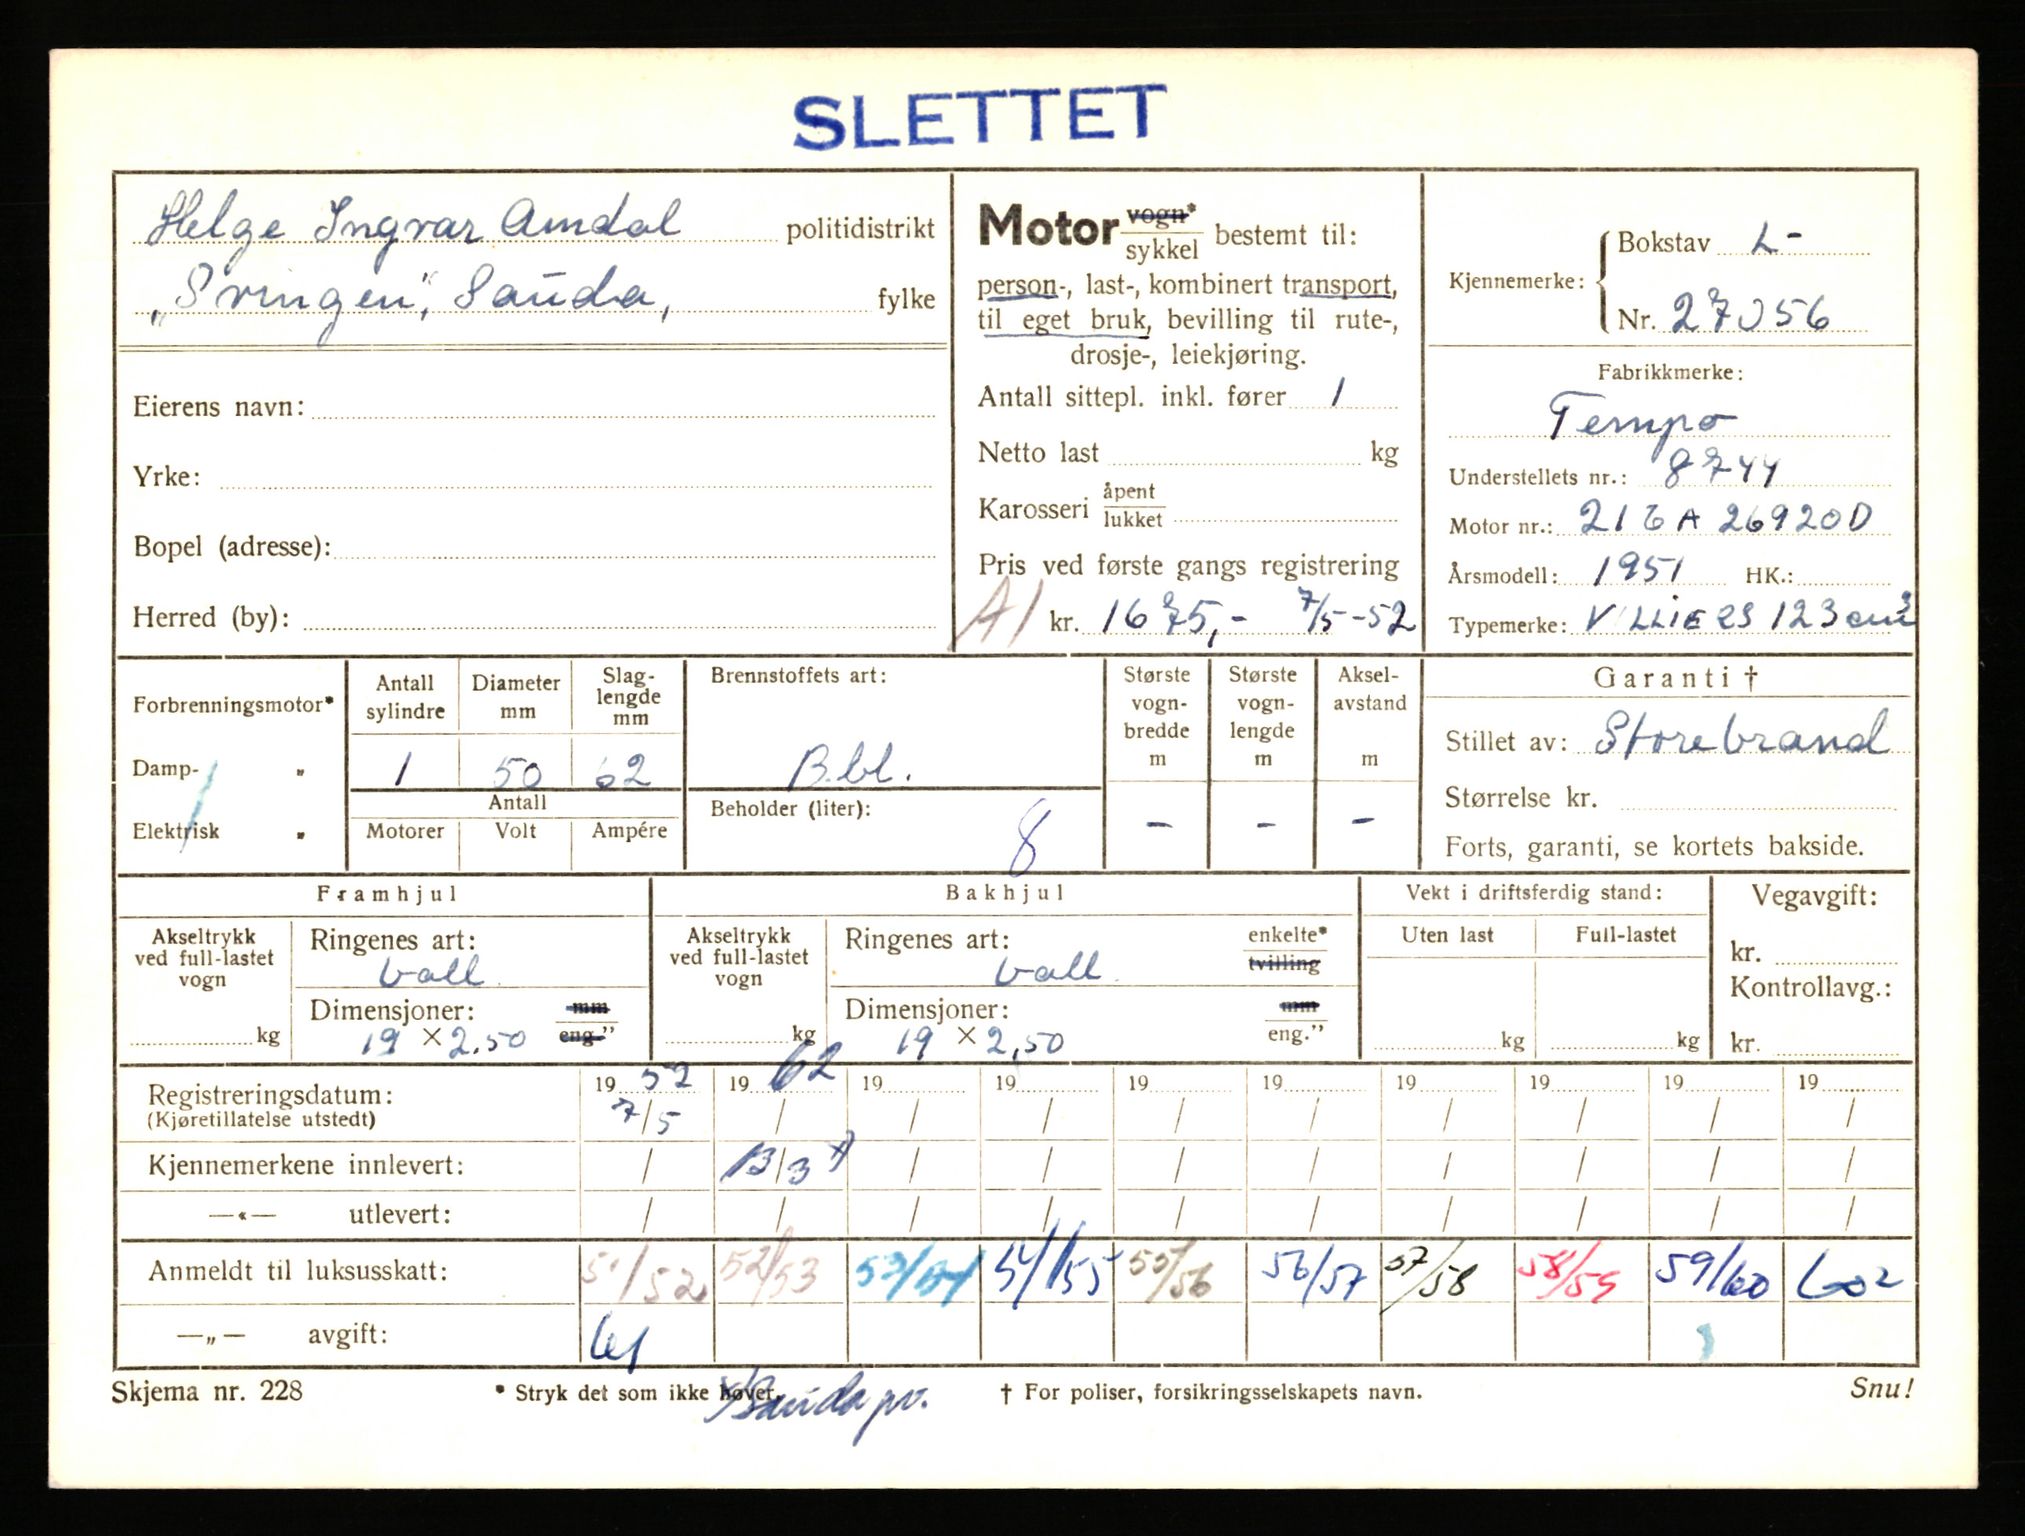 SLETTET
Helge Ingvar Amdal politidistrikt
„Svingen", Sauda, fylke
Eierens navn:
Yrke:
Bopel (adresse):
Herred (by):
Motor vogn* / sykkel bestemt til:
person-, last-, kombinert transport,
til eget bruk, bevilling til rute-,
drosje-, leiekjøring.
Antall sittepl. inkl. fører 1
Netto last kg
Karosseri åpent / lukket
Pris ved første gangs registrering
A1 kr. 1675,- 7/5-52
Kjennemerke: Bokstav L-
Nr. 27056
Fabrikkmerke:
Tempo
Understellets nr.: 8744
Motor nr.: 216 A 26920D
Årsmodell: 1951 HK.:
Typemerke: VILLIERS 123 cm3
Forbrenningsmotor*
Damp- „
Elektrisk „
Antall sylindre Diameter mm Slag-lengde mm
1 50 62
Antall
Motorer Volt Ampére
Brennstoffets art:
B.bl.
Beholder (liter):
8
Største vogn-bredde m Største vogn-lengde m Aksel-avstand m
- - -
Garanti †
Stillet av: Storebrand
Størrelse kr.
Forts, garanti, se kortets bakside.
Framhjul
Akseltrykk ved full-lastet vogn
kg
Ringenes art:
ball
Dimensjoner: mm
19 × 2.50 eng."
Bakhjul
Akseltrykk ved full-lastet vogn
kg
Ringenes art: enkelte*
ball tvilling
Dimensjoner: mm
19 × 2,50 eng."
Vekt i driftsferdig stand:
Uten last Full-lastet
kg kg
Vegavgift:
kr.
Kontrollavg.:
kr.
Registreringsdatum: 19 52 19 62 19 19 19 19 19 19 19 19
(Kjøretillatelse utstedt) 7/5 / / / / / / / / /
Kjennemerkene innlevert: / 13/3 x) / / / / / / / /
—«— utlevert: / / / / / / / / / /
Anmeldt til luksusskatt: 51/52 52/53 53/54 54/55 55/56 56/57 57/58 58/59 59/60 602
—„— avgift: 61
Skjema nr. 228 * Stryk det som ikke høver. † For poliser, forsikringsselskapets navn. Snu!
x) Sauda pv.